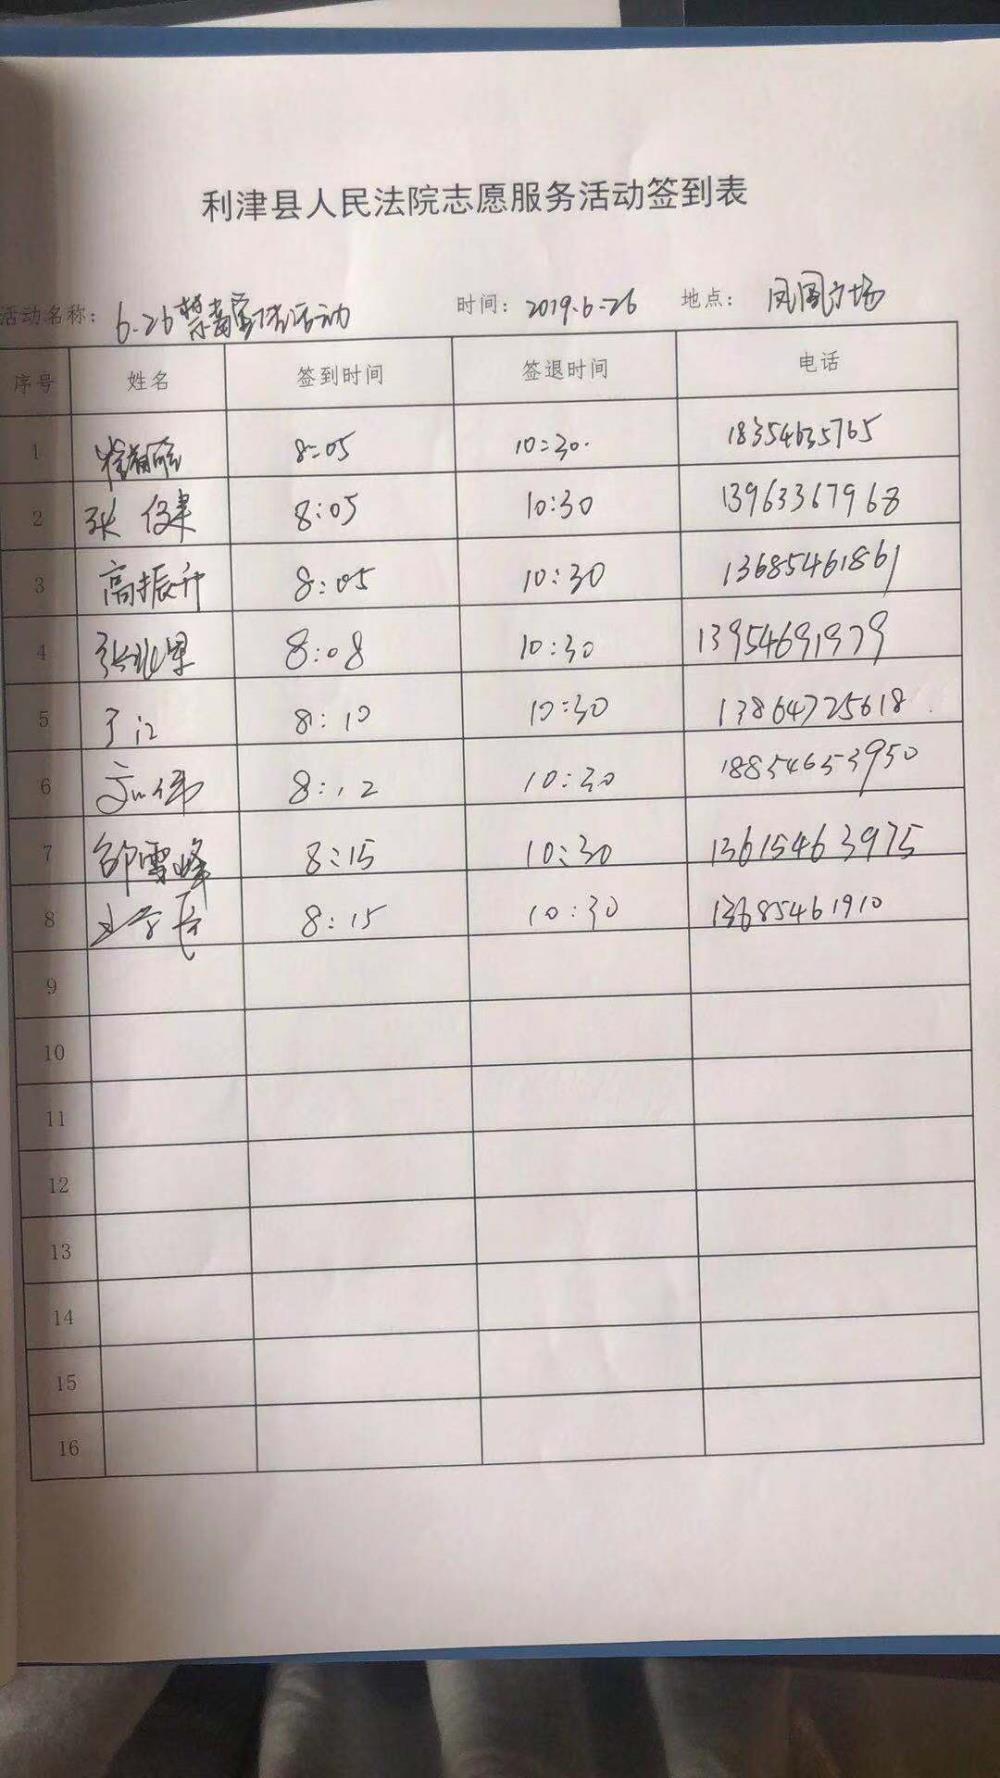 利津县人民法院志愿服务活动签到表
活动名称: 6.26禁毒宣传活动 时间: 2019.6.26 地点: 凤凰广场
序号 姓名 签到时间 签退时间 电话
1 8:05 10:30. 18354635765
2 张俊隶 8:05 10:30 13963367968
3 高振升 8:05 10:30 13685461861
4 8:08 10:30 13954691979
5 8:10 10:30 13864725618
6 8:12 10:30 18854653950
7 邵雪峰 8:15 10:30 13615463975
8 8:15 10:30 13685461910
9
10
11
12
13
14
15
16